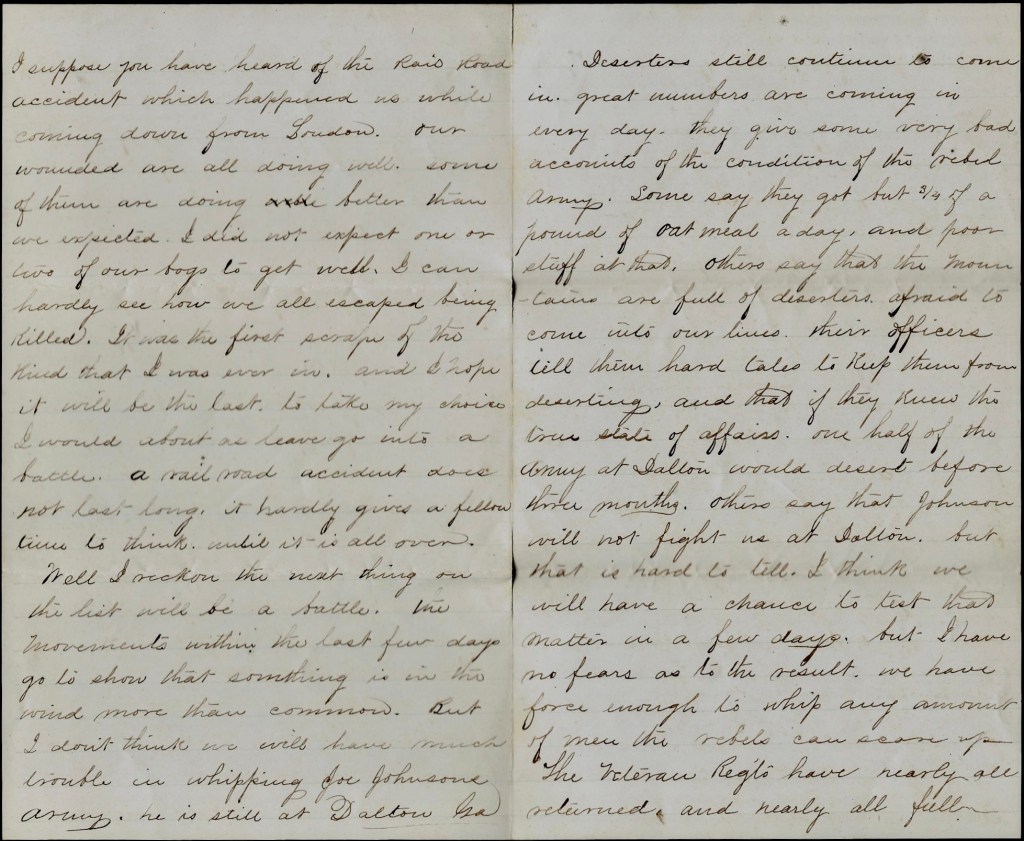 I suppose you have heard of the Rail Road
accident which happened us while
coming down from Loudon. Our
wounded are all doing well. some
of them are doing better than
we expected. I did not expect one or
two of our boys to get well. I can
hardly see how we all escaped being
Killed. It was the first scrape of the
Kind that I was ever in. and I hope
it will be the last. to take my choice
I would about as leave go into a
battle. a rail road accident does
not last long. it hardly gives a fellow
time to think. until it is all over.
Well I reckon the next thing on
the list will be a battle. the
movements within the last few days
go to show that something is in the
wind more than common. But
I don't think we will have much
trouble in whipping Joe Johnsons
army. he is still at Dalton Ga
Deserters still continue to come
in. great numbers are coming in
every day. they give some very bad
accounts of the condition of the rebel
Army. Some say they got but 3/4 of a
pound of oat meal a day. and poor
stuff at that. others say that the Moun
-tains are full of deserters. afraid to
come into our lines. their officers
tell them hard tales to Keep them from
deserting, and that if they Knew the
true state of affairs. one half of the
Army at Dalton would desert before
three months. others say that Johnson
will not fight us at Dalton. but
that is hard to tell. I think we
will have a chance to test that
matter in a few days. but I have
no fears as to the result. we have
force enough to whip any amount
of men the rebels can scare up
The Veteran Regts have nearly all
returned. and nearly all full